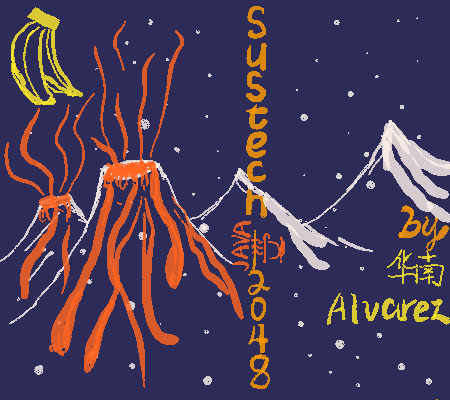 Sustech
JAVA
2048
By
华南
Alvarez